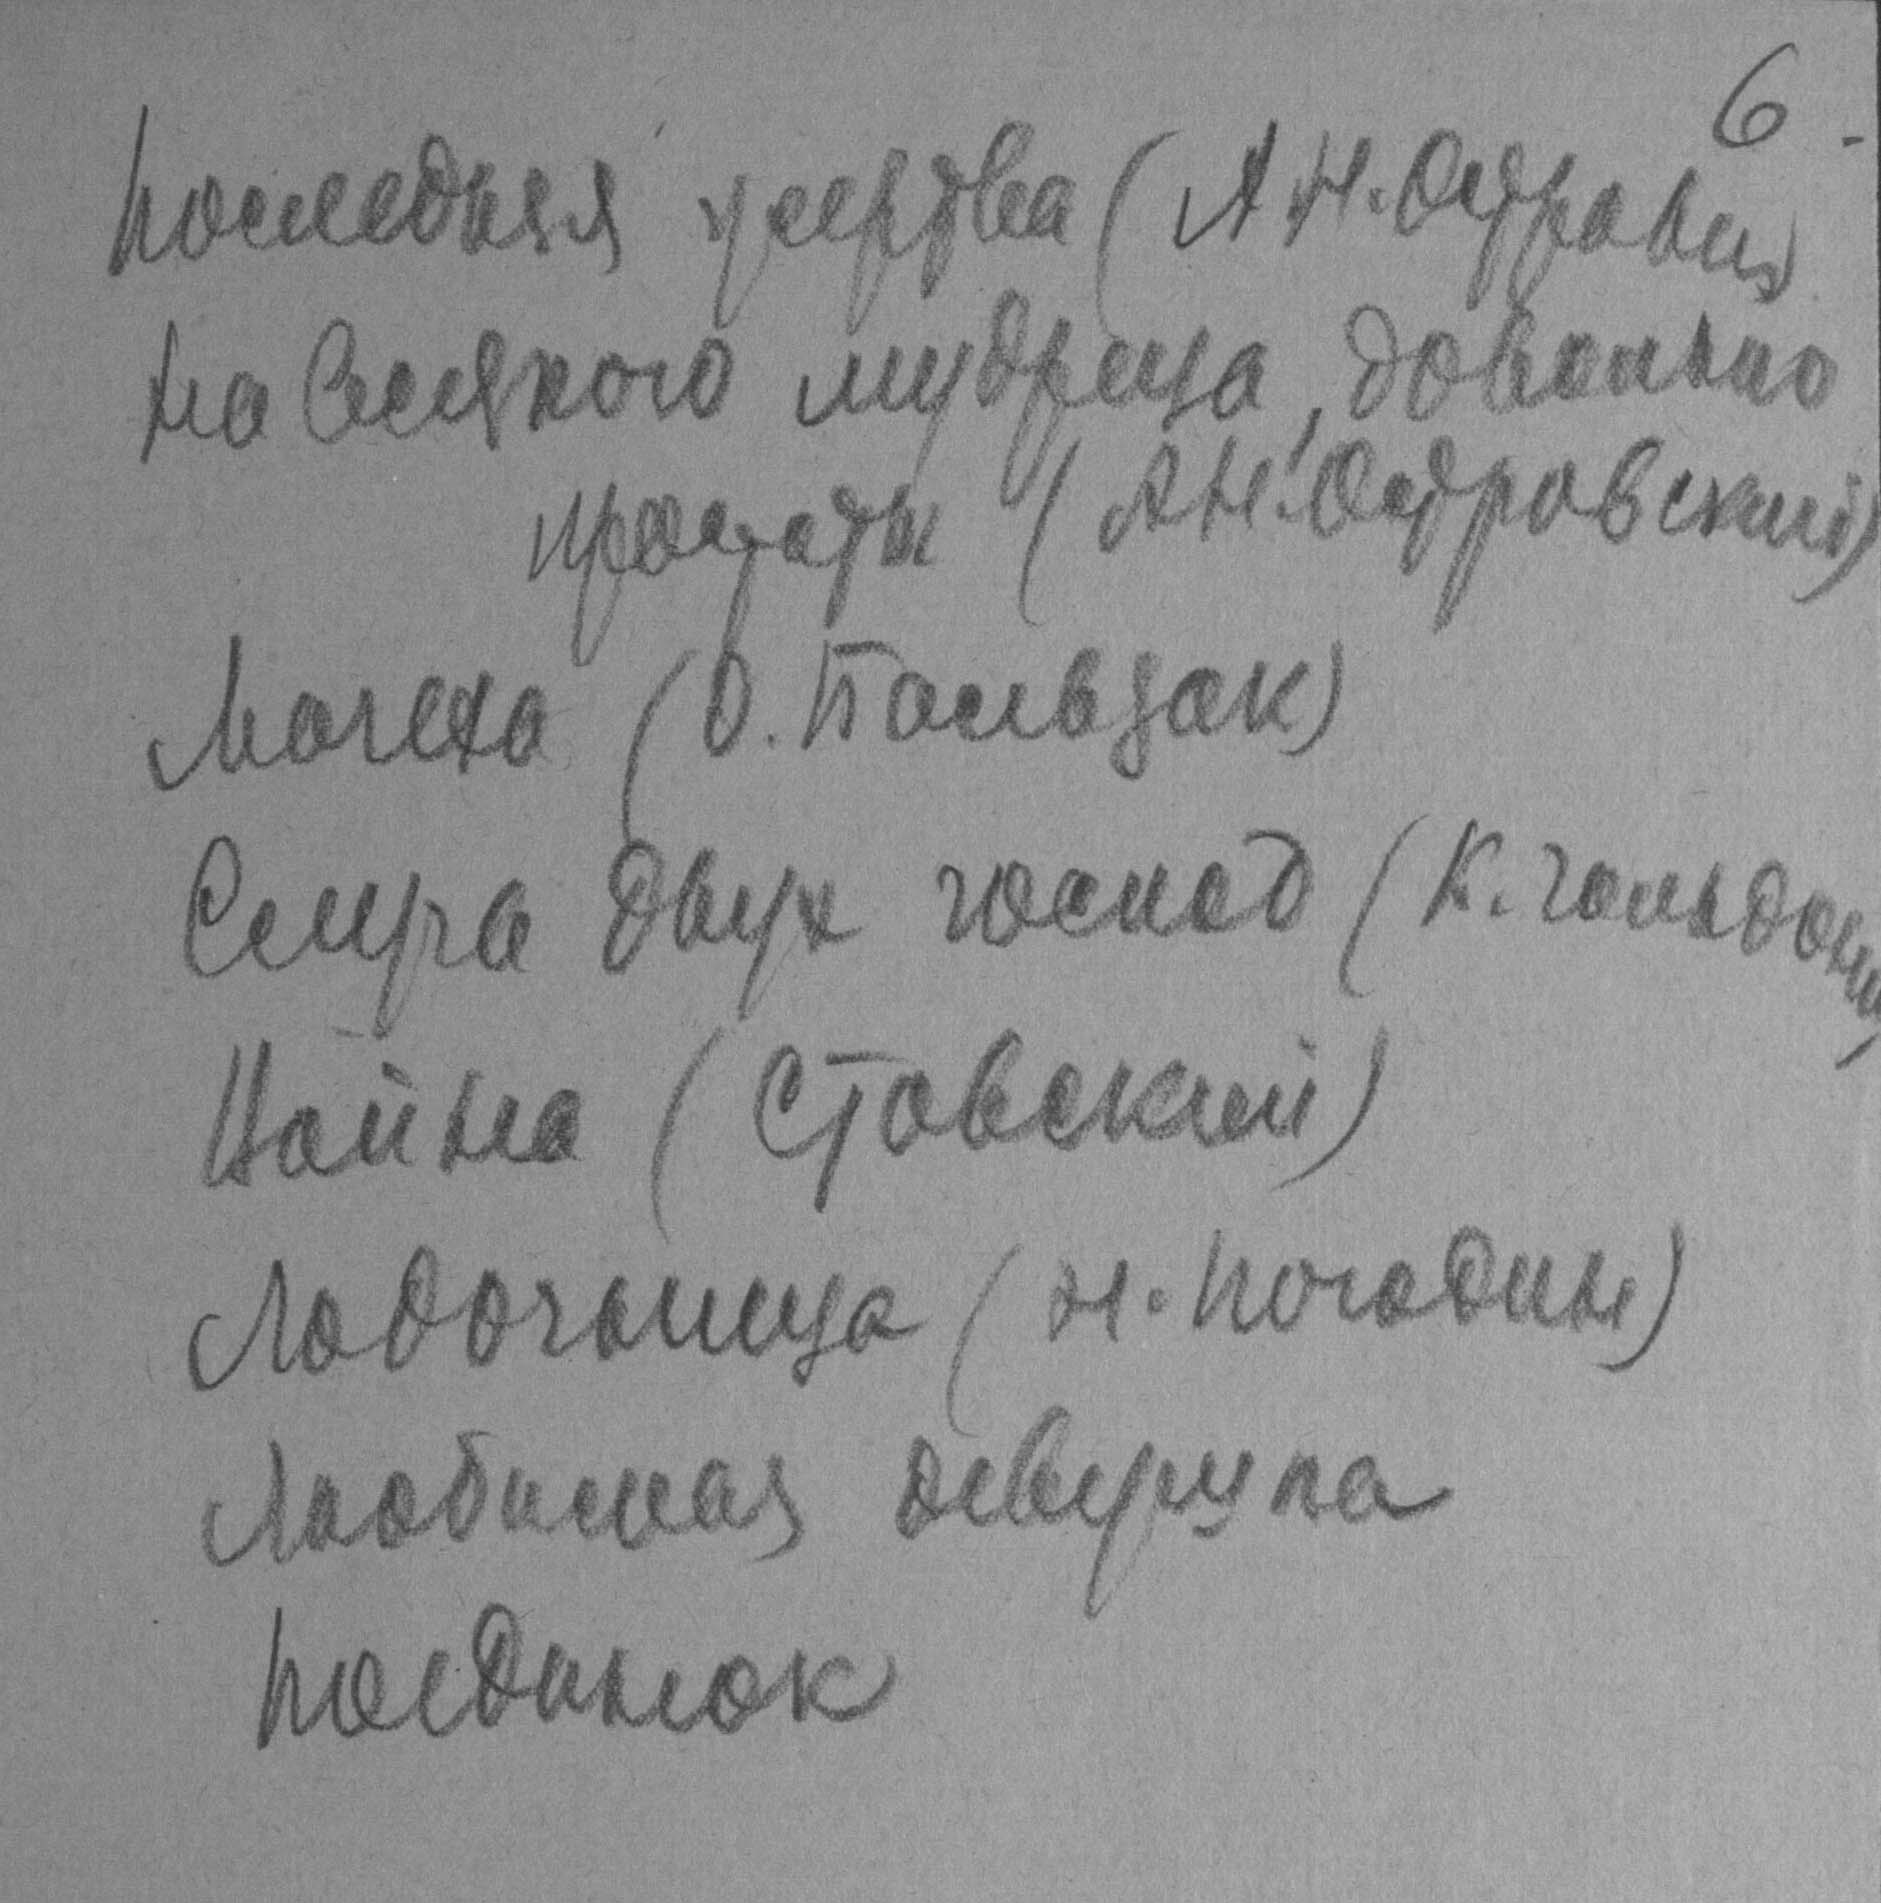 6.
Последняя жертва (А Н. Островск)
На всякого мудреца, довольно
простоты (А Н. Островский)
Мачеха (О. Бальзак)
Слуга двух господ (К. Гольдони)
Война (Ставский)
Лодочница (Н. Погодин)
Любимая девушка
Поединок